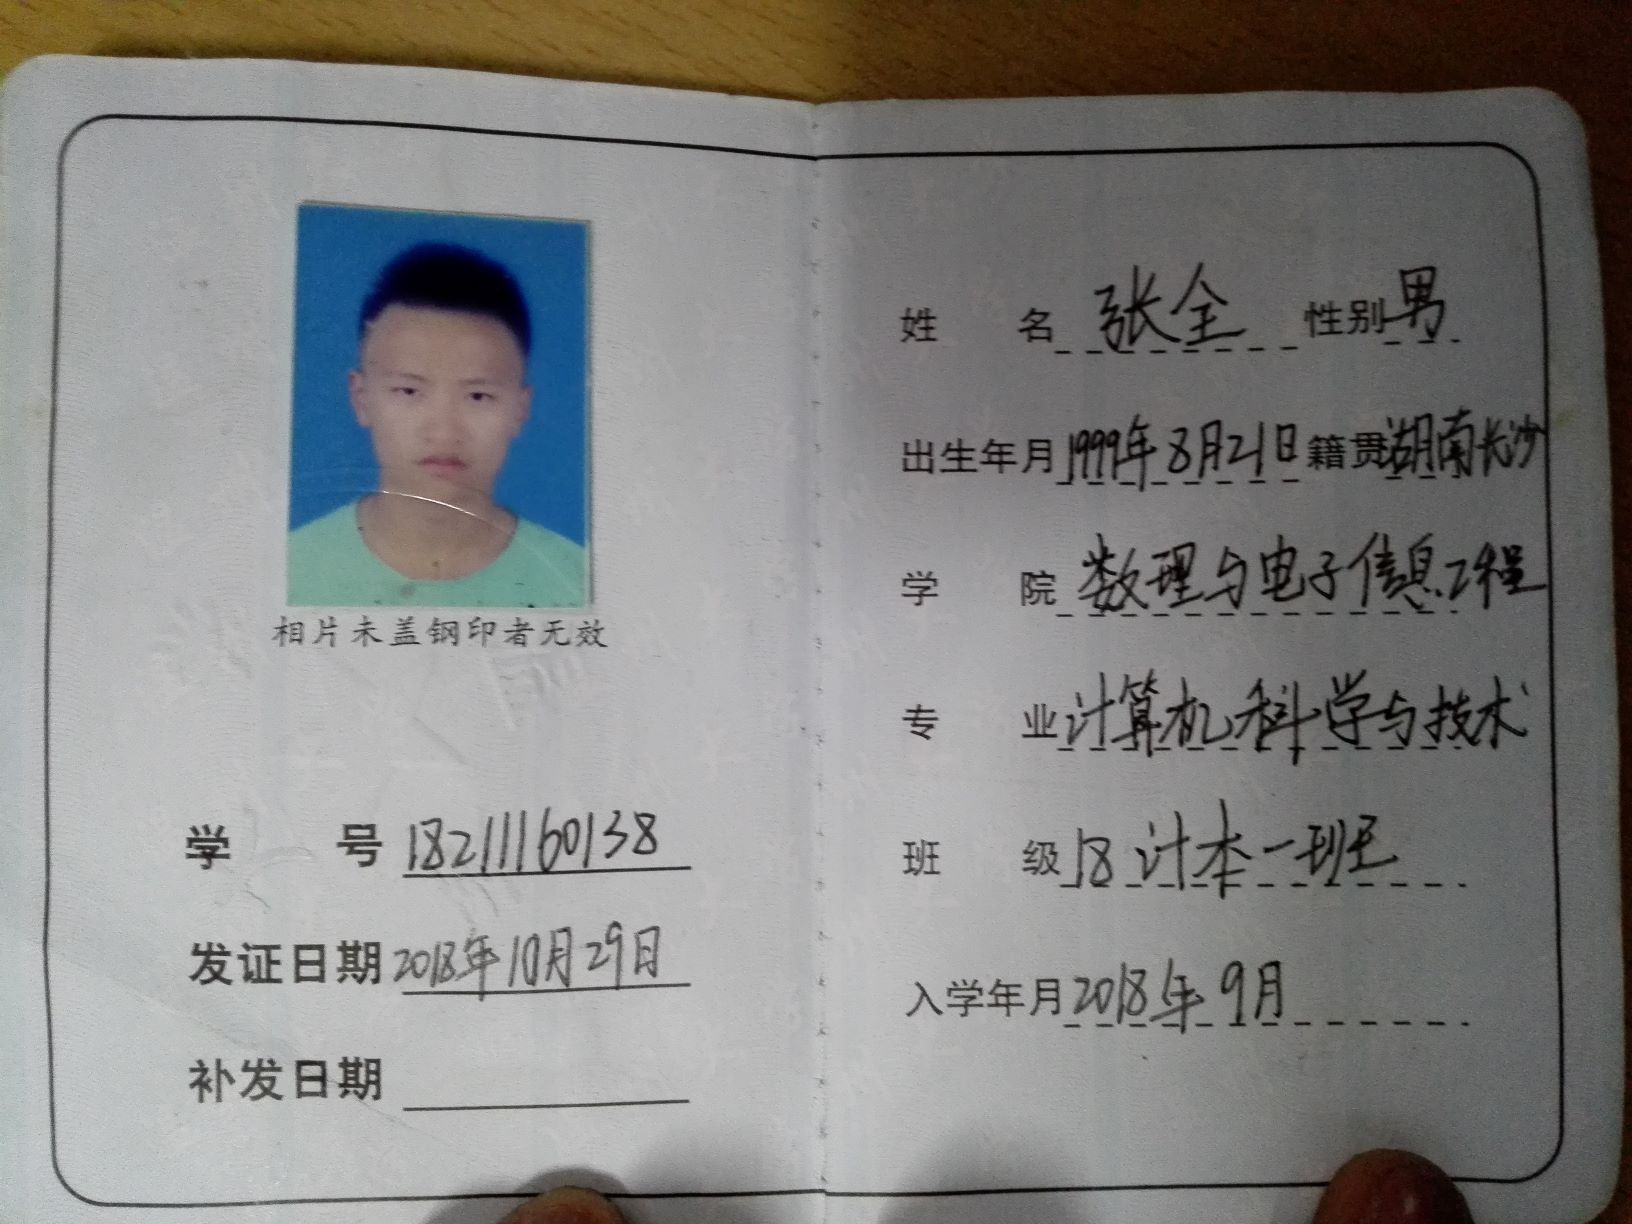 相片未盖钢印者无效
学号 18211160138
发证日期 2018年10月29日
补发日期
姓名 张全 性别 男
出生年月 1999年8月21日 籍贯 湖南长沙
学院 数理与电子信息工程
专业 计算机科学与技术
班级 18计本一班
入学年月 2018年9月